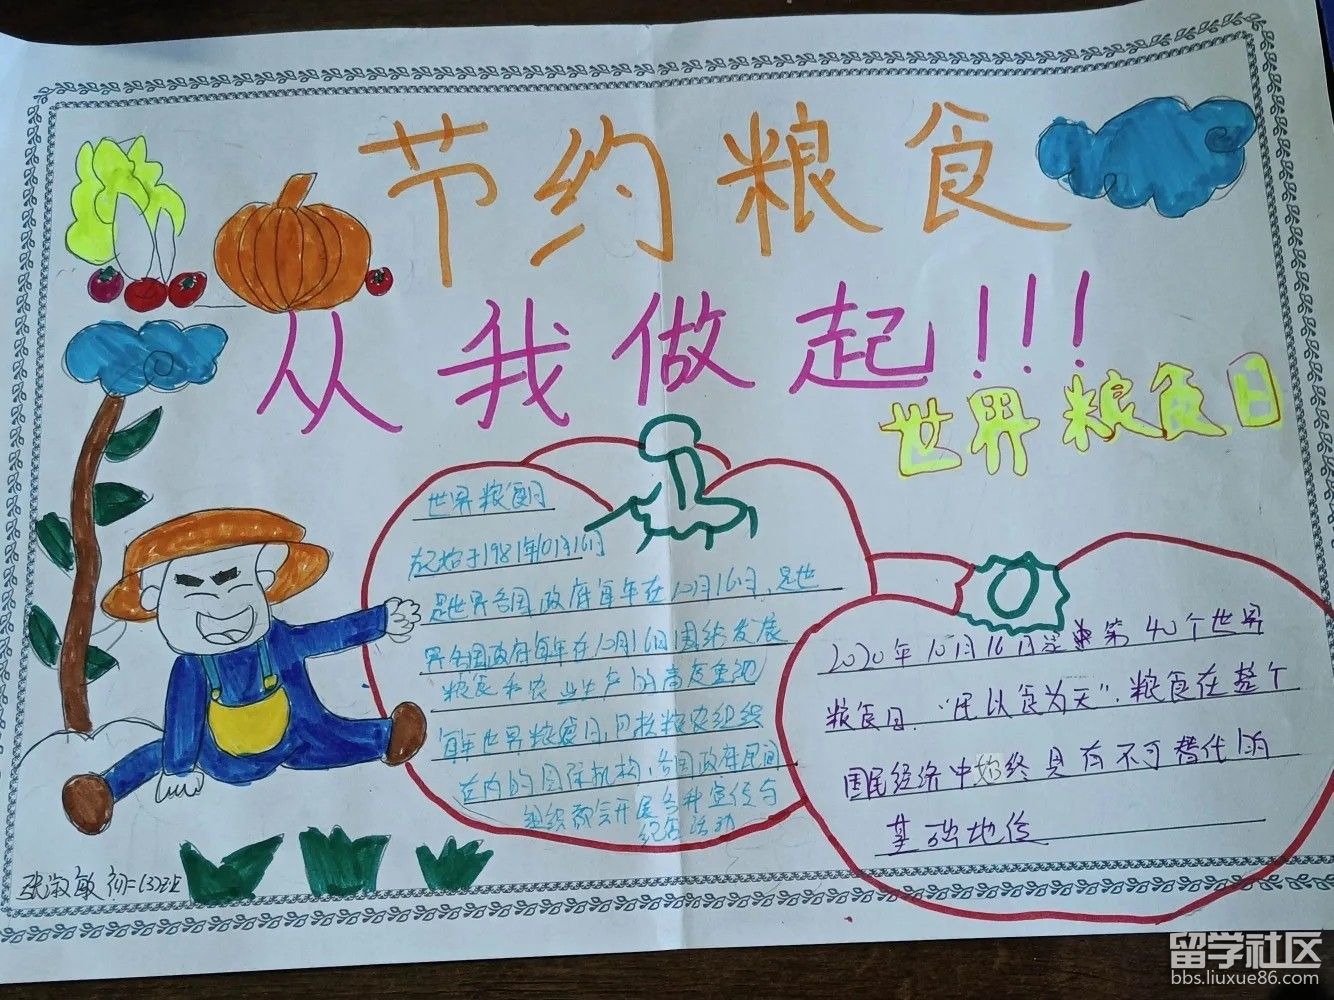 节约粮食
从我做起!!!
世界粮食日
世界粮食日
起始于1981年10月16日
是世界各国政府每年在10月16日,是世
界各国政府每年在10月16日围绕发展
粮食和农业生产的高度重视
每年世界粮食日,包括粮农组织
在内的国际机构、各国政府民间
组织都会开展各种宣传与
纪念活动
2020年10月16日是第40个世界
粮食日."民以食为天".粮食在整个
国民经济中始终具有不可替代的
基础地位
张淑敏 初二(3)班
留学社区
bbs.liuxue86.com